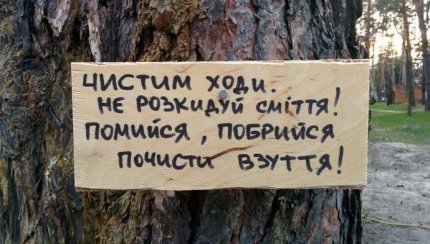 ЧИСТИМ ХОДИ.
НЕ РОЗКИДУЙ СМІТТЯ!
ПОМИЙСЯ, ПОБРИЙСЯ
ПОЧИСТИ ВЗУТТЯ!